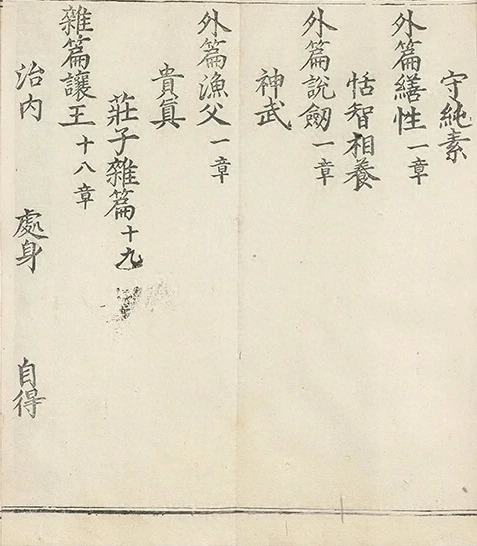 守純素
外篇繕性一章
恬智相養
外篇說劔一章
神武
外篇漁父一章
貴眞
莊子雜篇十九
雜篇讓王十八章
治内 處身 自得